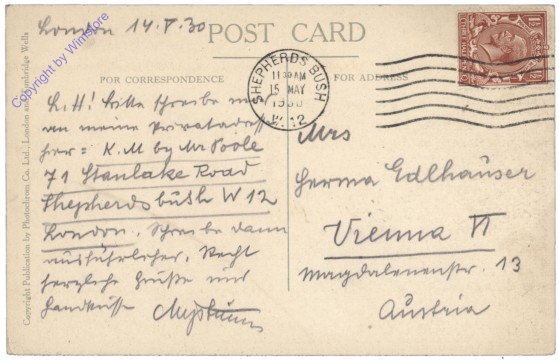 London 14.V.30
POST CARD
FOR CORRESPONDENCE
FOR ADDRESS
SHEPHERDS BUSH
11 30 AM
15 MAY
1930
W.12
L. H! Bitte schreibe mir
an meine Privatadresse
her: K.M by Mr Poole
71 Stanlake Road
Shepherds búsh W 12
London. Schreibe dann
ausführlicher. Recht
herzliche Grüße und
Handküsse
Mrs
Herma Edlhaúser
Vienna VI
Magdalenenstr. 13
Aústria
Copyright Publication by Photochrom Co. Ltd., London and Tunbridge Wells
Copyright by Wimstore